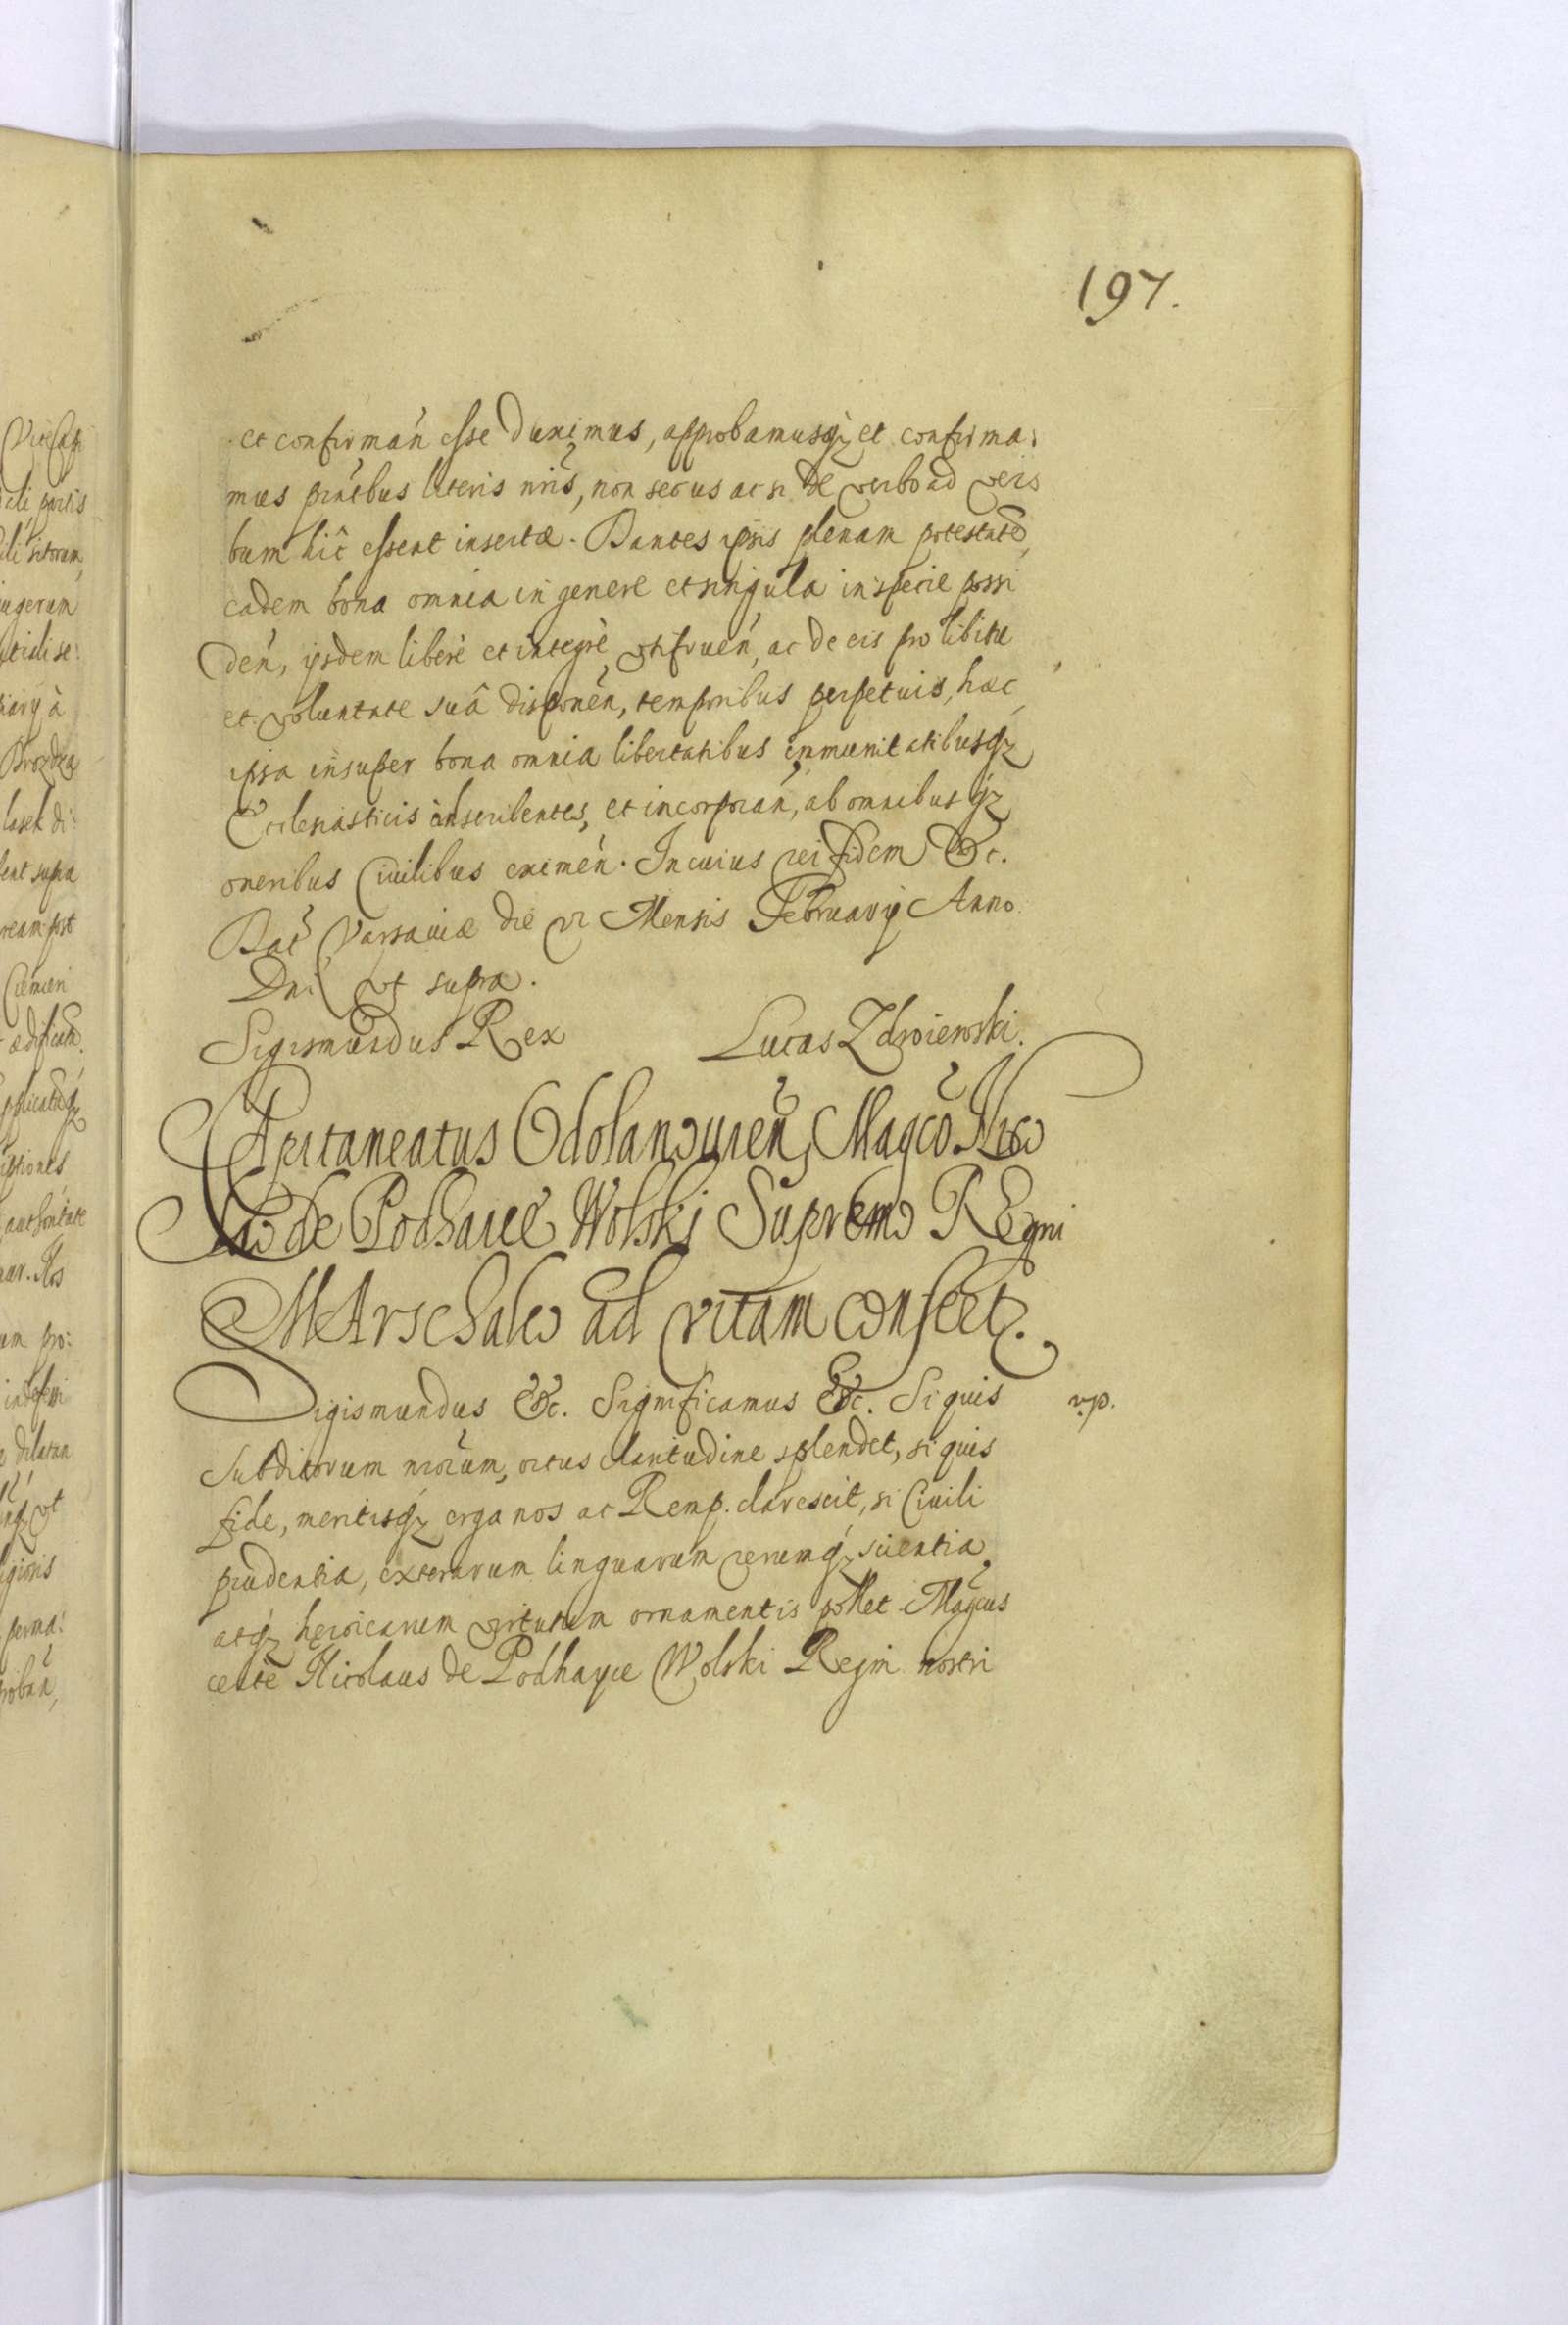 197.
et confirmań esse duximus, approbamusq; et confirma:
mus prńtibus literis nris, non secus ac si de verbo ad ver:
bum hîc essent insertæ. Dantes ipsis plenam potestatē,
eadem bona omnia in genere et singula in specie possi
deń, ijsdem liberè et integrè vtifrueń, ac de eis pro libitu
et voluntate suâ disponeń, temporibus perpetuis, hæc
ipsa insuper bona omnia libertatibus immunitatibusq;
Ecclesiasticis adscribentes, et incorporań, ab omnibusq;
oneribus Ciuilibus eximeń. In cuius rei fidem &c.
Dat Varsauiæ die VI Mensis February Anno
Dni vt supra.
Sigismundus Rex Lucas Zdroiewski.
Capitaneatus Odolanouień Magco Nico
lao de Podhaice Wolski Supremo Regni
Marschalco ad vitam confert.
Sigismundus &c. Significamus &c. Si quis
v.p.
subditorum nrorum, ortus claritudine splendet, si quis
fide, meritisq; erga nos ac Remp. clarescit, si Ciuili
prudentia, exterarum linguarum rerumq; scientia
atq; heroicarum virtutum ornamentis pollet Magcus
certe Nicolaus de Podhayce Wolski Regni nostri
Vicecap
cli partis
sitorum,
iugerum
Brozdza
lasek di:
lent supra
ream post
ædificia
authoritate
Nos
um pro:
indefessi
dilatan
vt
perma: